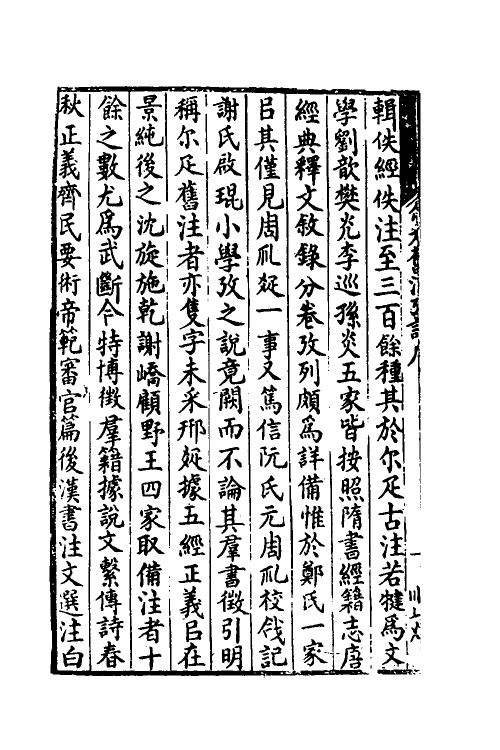 輯佚經佚注至三百餘種其於尔疋古注若犍爲文
學劉歆樊光李巡孫炎五家皆按照隋書經籍志唐
經典釋文敘錄分卷攷列頗爲詳備惟於鄭氏一家
㠯其僅見周礼疏一事又篤信阮氏元周礼校勘記
謝氏啟琨小學攷之説竟闕而不論其羣書徵引明
稱尔疋舊注者亦隻字未采邢疏據五經正義㠯在
景純後之沈旋施乾謝嶠顧野王四家取備注者十
餘之數尤爲武斷今特博徵羣籍據說文繫傳詩春
秋正義齊民要術帝範審官篇後漢書注文選注白